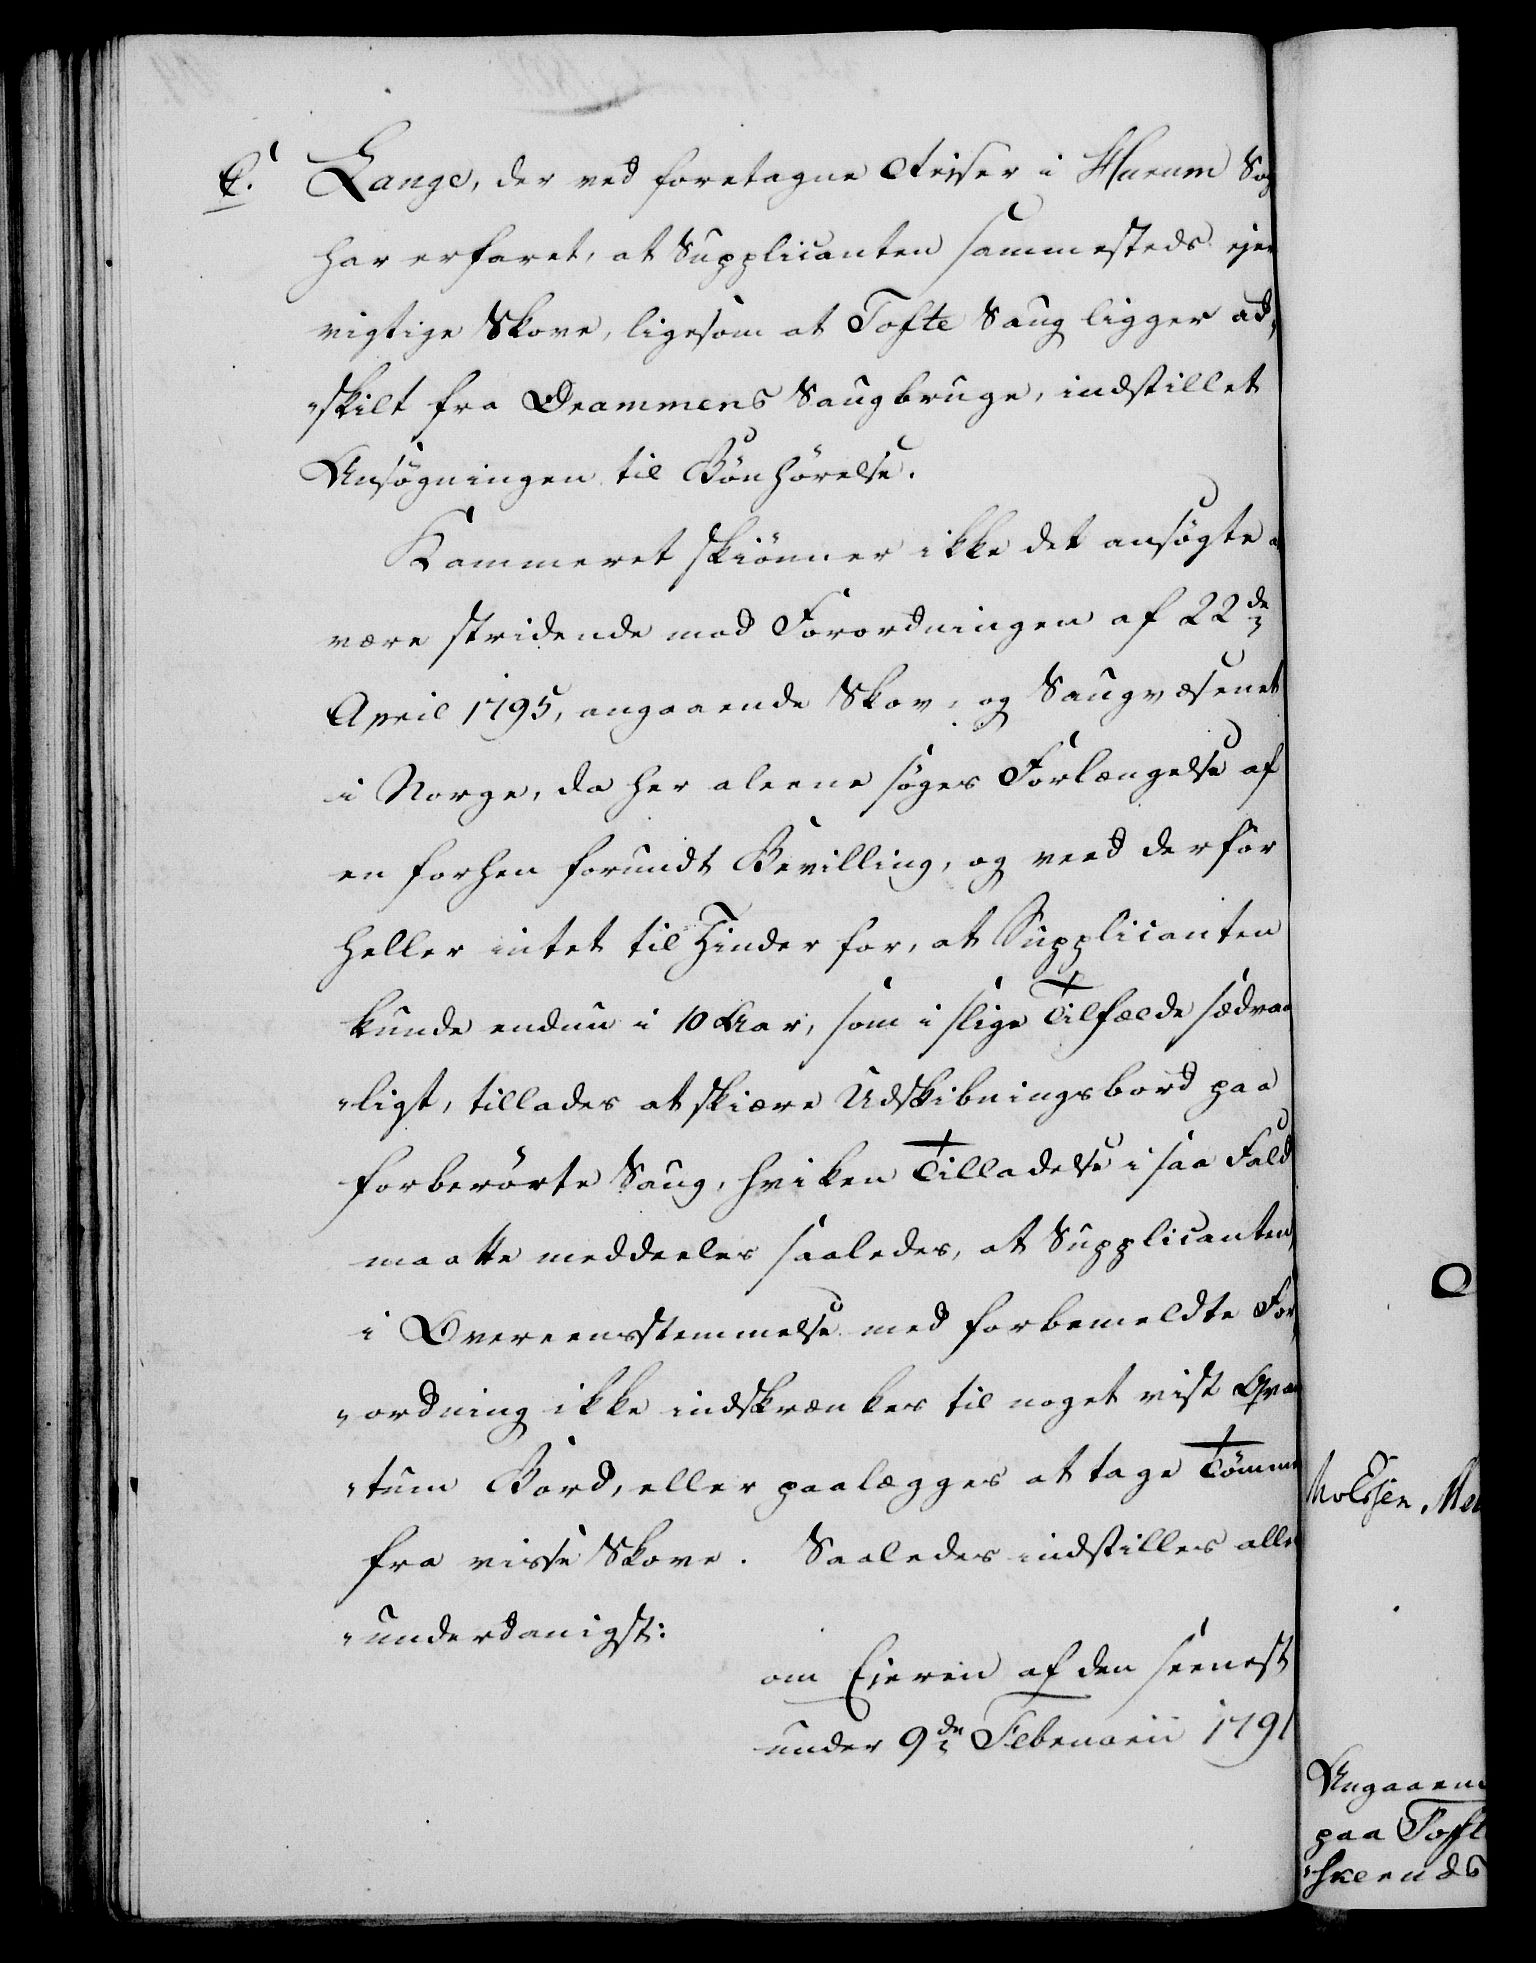 C. Lange, der ved foretagne Reiser i Hurum Sog
har erfaret, at Supplicanten sammesteds ejer
vigtige Skove, ligesom at Tofte Saug ligger ad-
"skilt fra Drammens Saugbruge, indstillet
Ansøgningen til Bönhörelse.
Kammeret skiönner ikke det ansøgte a
være stridende mod Forordningen af 22de
April 1795, angaaende Skov- og Saugvæsenet
i Norge, da her aleene søges Forlængelse af
en forhen forundt Bevilling, og veed derfor
heller intet til Hinder for, at Supplicanten
kunde endnu i 10 Aar, som i slige Tilfælde sædvan
"ligt, tillades at skiære Udskibningsbord paa
forberörte Saug, hvilken Tilladelse i saa Fald
maatte meddeeles saaledes, at Supplicanten,
i Overeensstemmelse med forbemeldte For-
"ordning ikke indskrænkes til noget vist Qvan
"tum Bord, eller paalægges at tage Tömme
fra visse Skove. Saaledes indstilles aller
"underdanigst:
om Ejeren af den seenest
under 9de Februarii 1791
Angaaen
paa Toft